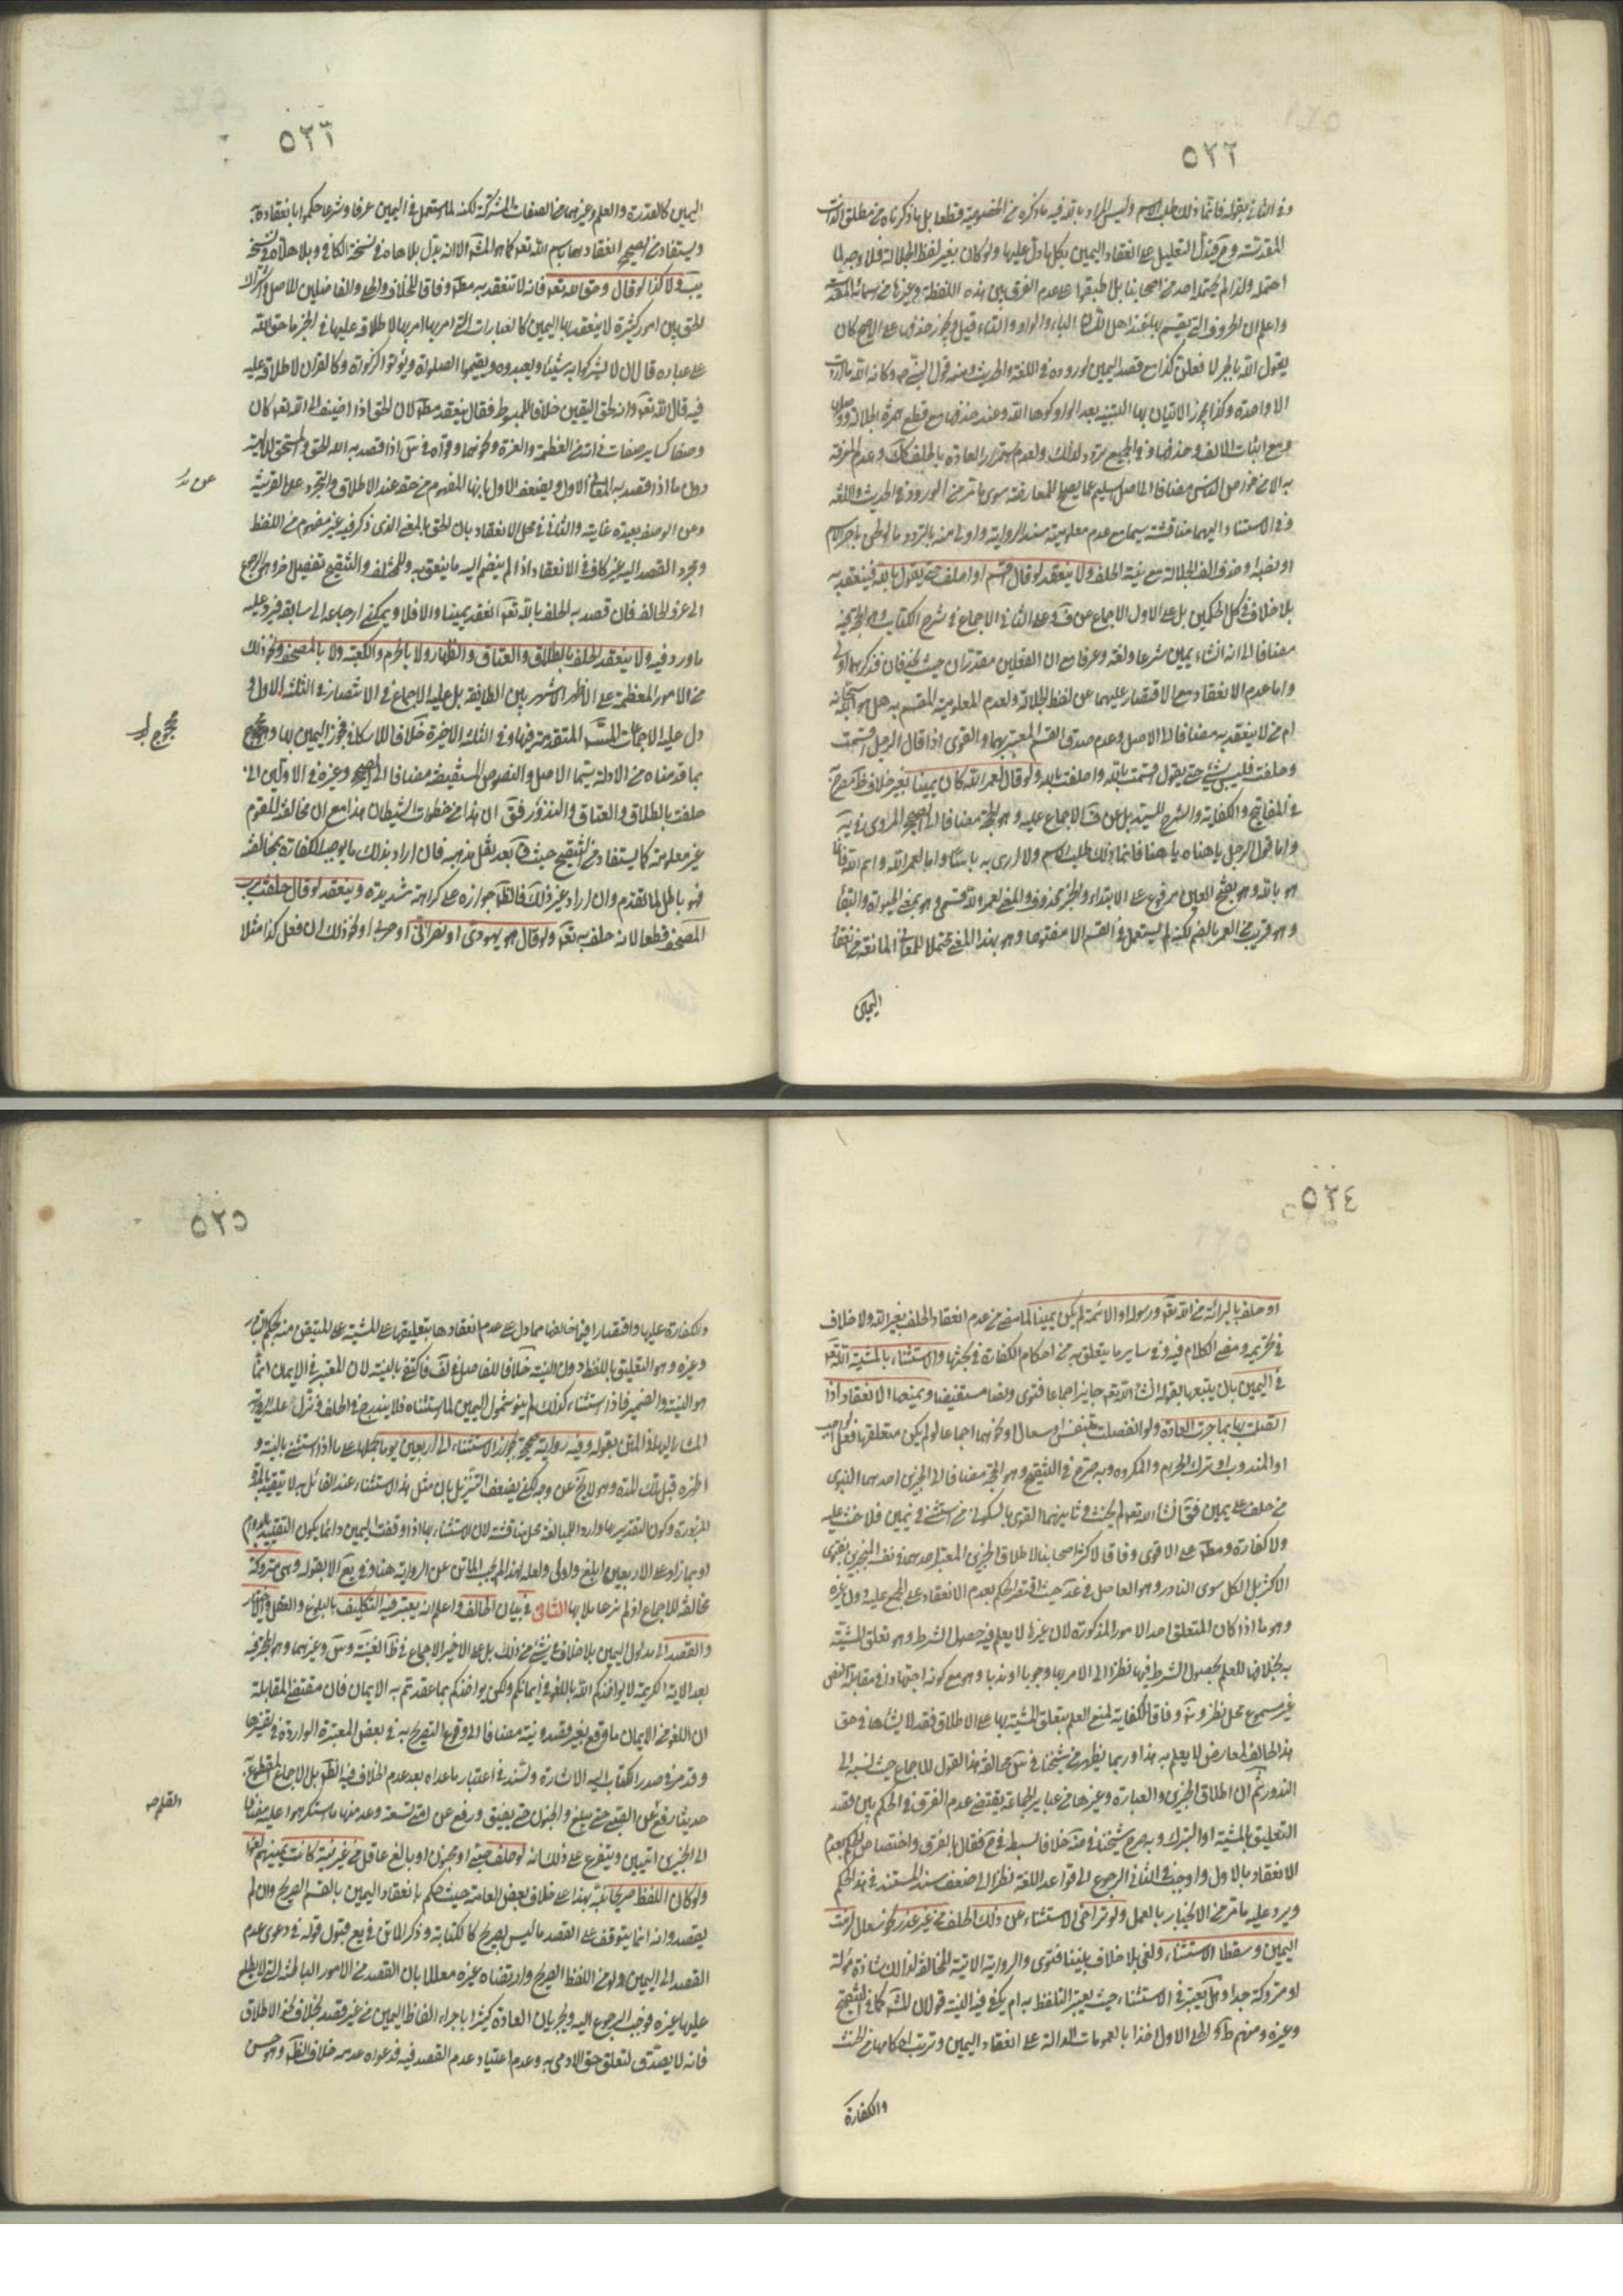 ٥٢٢
وفي الثاني بقوله فانما ذلك طلب الاسم وليس المراد بالله فيه ما ذكره من الخصوصية قطعا بل ما ذكرناه من مطلق الذات
المقدسة وح فيدل التعليل على انعقاد اليمين بكل ما دل عليها ولو كان بغير لفظ الجلالة فلا وجه لما
احتمله ولذا لم يحتمله احد من اصحابنا بل اطبقوا على عدم الفرق بين هذه اللفظة وغيرها من اسمائه المختصة
واعلم ان الحروف التي يقسم بها عند اهل اللسان الباء والواو والتاء قيل ويجوز حذفها على الاصح كان
يقول الله بالجر لافعلن كذا مع قصد اليمين لوروده في اللغة والحديث ومنه قول النبي ص وكانه الله ما اردت
الا واحدة وكذا يجوز الاتيان بها التنبيه بعد الواو كوها الله وعند حذفها مع قطع همزة الجلالة ووصلها
ومع اثبات الالف وحذفها وفي الجميع تردد لذلك ولعدم استمرار العادة بالحلف كك وعدم المعرفة
به الا من خواص الناس مضافا الى الاصل السليم عما يصلح للمعارضة سوى ما مر من الورود في الحديث واللغة
وفي الاستناد اليهما مناقشة سيما مع عدم معلومية سند الرواية واولى منه بالتردد ما لو اتى باجر الاسم
او نصبه او حذف الف الجلالة مع نية الحلف ولا ينعقد لو قال اقسم او احلف حتى يقول بالله فينعقد به
بلا خلاف في كل الحكمين بل على الاول الاجماع عن ف وعلى الثاني الاجماع في شرح الكتاب وهو الحجة فيه
مضافا الى انه انشاء يمين شرعا ولغة وعرفا مع ان الفعلين مقدران حيث يحذفان فذكرهما اولى
واما عدم الانعقاد مع الاقتصار عليهما عن لفظ الجلالة ولعدم المعلومية المقسم به هل هو الله سبحانه
ام من لا ينعقد به مضافا الى الاصل وعدم صدق القسم المعتبر بهما والقوى اذا قال الرجل اقسمت
وحلفت فليس بشيء حتى يقول اقسمت بالله وحلفت بالله ولو قال لعمر الله كان يمينا بغير خلاف ظ مصرح به
في المفاتيح والكفاية والشرح للسيد بل عن ف الاجماع عليه وهو الحجة مضافا الى الصحيح المروي في يه
واما قول الرجل يا هناه يا هنا فانما ذلك طلب الاسم ولا ارى به باسا واما لعمر الله وايم الله فانما
هو بالله وهو بفتح العين مرفوع على الابتداء والخبر محذوف والمعنى لعمر الله قسمي وهو بمعنى الحيوة والبقاء
وهو قريب من العمر بالضم لكنه لم يستعمل في القسم الا مفتوحا وهو بهذا المعنى محتملا للمعاني المانعة من انعقاد
اليمين
٥٢٣
اليمين كالقدرة والعلم وغيرهما من الصفات المشتركة لكنه لما استعمل في اليمين عرفا وشرعا حكموا بانعقاده به
ويستفاد من الصحيح انعقادها بايم الله تعه كما هو المش الا انه بدل بلاهاه في نسخة الكافي وبلا هلاه في نسخة
يب ولا كذا لو قال وحق الله تعه فانه لا تنعقد به مط وفاقا للخلاف والحلي والفاضلين للاصل واشتراك
الحق بين امور كثيرة لا ينعقد بها اليمين كالعبارات التي امر بها امر بها لاطلاقه عليها في الخبر ما حق الله
على عباده قال ان لا يشركوا به شيئا ويعبدوه ويقيموا الصلوة ويؤتوا الزكوة وكالقران لاطلاقه عليه
فيه قال الله تعه وانه لحق اليقين خلافا للمبسوط فقال ينعقد مط لان الحق اذا اضيف الى الله تعه كان
وصفا كساير صفات ذاته من العظمة والعزة ونحوهما وقواه في س اذا قصد به الله الحق والمستحق للالهية
دون ما اذا قصد به المعاني الاول ويضعف الاول بانها المفهوم من حقه عند الاطلاق والتجرد على القرينة
وعن الوصف بعيدة غايته والثاني في محل الانعقاد بان الحق بالمعنى الذي ذكر فيه غير مفهوم من اللفظ
ومجرد القصد اليه غير كاف في الانعقاد اذا لم ينضم اليه ما ينعق به وللمختلف والتنقيح تفصيل اخر وهو الرجوع
الى عرف الحالف فان قصد به الحلف بالله تعه انعقد يمينا والا فلا ويمكن ارجاعه الى سابقه فيرد عليه
ما ورد فيه ولا ينعقد الحلف بالطلاق والعتاق والظهار ولا بالحرم والكعبة ولا بالمصحف ونحو ذلك
من الامور المعظمة على الاظهر الاشهر بين الطايفة بل عليه الاجماع في الانتصار في الثلثة الاول و
دل عليه الاجماعات المتقدمة فيها وفي الثلثة الاخيرة خلافا للاسكافي فجوز اليمين بها وهو محجوج
بما قدمناه من الادلة سيما الاصل والنصوص المستفيضة مضافا الى الصحيح وغيره في الاولين اني
حلفت بالطلاق والعتاق والنذور فق ان هذا من خطوات الشيطان هذا مع ان مخالفة المرقوم
غير معلومة كما يستفاد من التنقيح حيث قال بعد نقل مذهبه فان اراد بذلك ما يوجب الكفارة بمخالفته
فهو باطل لما تقدم وان اراد غير ذلك فالظ جوازه على كراهة شديدة وينعقد لو قال حلفت برب
المصحف قطعا لانه حلف به تعه ولو قال هو يهودي او نصراني او حربي او نحو ذلك ان فعل كذا مثلا
محجوج
٥٢٤
او حلف بالبرائة من الله تعه ورسوله او الائمة لم يكن يمينا لما مضى من عدم انعقاد الحلف بغير الله ولا خلاف
في تحريمه ومضى الكلام فيه وفي ساير ما يتعلق به من احكام الكفارة في بحثها والاستثناء بالمشية لله تعه
في اليمين بان يتبعها بقوله انشاء الله تعه جايز اجماعا فتوى ونصا مستفيضا ويمنعها الانعقاد اذا
اتصلت بها بما جرت العادة ولو انفصلت بتنفس او سعال او نحوهما اجماعا لو لم يكن متعلقها فعل الواجب
او المندوب او ترك الحرام والمكروه وبه صرح في التنقيح وهو الحجة مضافا الى الخبرين احدهما النبوي
من حلف على يمين فق انشاء الله تعه لم يحنث وثانيهما القوي بالسكوني من استثنى في يمين فلا حنث عليه
ولا كفارة ومط على الاقوى وفاقا لاكثر اصحابنا لاطلاق الخبرين المعتبر احدهما في نفسه المنجبرين بفتوى
الاكثر بل الكل سوى النادر وهو الفاضل في عد حيث اقتصر الحكم بعدم الانعقاد على المجمع عليه دون غيره
وهو ما اذا كان المتعلق احد الامور المذكورة لان غيرها لا يعلم فيه حصول الشرط وهو تعلق المشية
به بخلافها للعلم بحصول الشرط فيها نظرا الى الامر بها وجوبا او ندبا وهو مع كونه اجتهادا في مقابلة النص
غير مسموع محل نظر وفاقا لكفاية لمنع العلم بتعلق المشية بها على الاطلاق فقد لا يشاءها في حق
هذا الحالف لعارض لا يعلم به هذا وربما يظهر من شيخنا في لك مخالفة هذا القول للاجماع حيث نسبه الى
الندور ثم ان اطلاق الخبرين والعبارة وغيرها من عباير الجماعة يقتضي عدم الفرق في الحكم بين قصد
التعليق بالمشية او التبرك وبه صرح شيخنا في ضه خلافا لسبطه في ح فقال بالفرق واختصاص الحكم بعدم
الانعقاد بالاول واوجب في الثاني الرجوع الى قواعد اللغة نظرا الى ضعف سند المستند في هذا الحكم
ويرد عليه ما مر من الانجبار بالعمل ولو تراخى الاستثناء عن ذلك الحلف من غير عذر كنحو سعال لزمت
اليمين وسقط الاستثناء ولغى بلا خلاف بيننا فتوى والرواية الاتية المخالفة لذلك شاذة مؤلة
او متروكة جدا وهل يعتبر في الاستثناء حيث يعتبر التلفظ به ام يكفي فيه النية قولان المش كما في التنقيح
وغيره ومنهم ط والحلي الاول اخذا بالعمومات الدالة على انعقاد اليمين وترتب احكامها من الحنث
والكفارة
٥٢٥
والكفارة عليها واقتصارا فيما خالفها مما دل على عدم انعقادها بتعليقها على المشية على المتيقن منه بحكم التبادر
وغيره وهو التعليق باللفظ دون النية خلافا للفاضل في لف فاكتفى بالنية لان المعتبر في الايمان انما
هو النية والضمير فاذا استثناء كذلك لم ينو شمول اليمين لما استثناه فلا يندرج في الحلف ونزل عليه الرواية
المشار اليها في المتن بقوله وفيه رواية صحيحة بجواز الاستثناء الى اربعين يوما بحملها على ما اذا استثنى بالنية و
اظهره قبل تلك المدة وهو لا يخ عن وجه لكن يضعف التنزيل بان مثل هذا الاستثناء عند القائل به لا يتقيد بالمدة
المزبورة وكون التقدير بها واردا للمبالغة محل مناقشة لان الاستثناء بها اذا وقفت اليمين دائما يكون التقييد بالدوام
او بما زاد على الاربعين ابلغ واولى ولعله لهذا لم يجب الماتن عن الرواية هنا وفي يع الا بقوله وهي متروكة
مخالفة للاجماع اذ لم نر عاملا بها الثاني في بيان الحالف واعلم انه يعتبر فيه التكليف بالبلوغ والعقل والاختيار
والقصد الى مدلول اليمين بلا خلاف في شئ من ذلك بل على الاخير الاجماع في ظ الغنية وس وغيرهما وهو الحجة فيه
بعد الاية الكريمة لا يؤاخذكم الله باللغو في ايمانكم ولكن يؤاخذكم بما عقدتم به الايمان فان مقتضى المقابلة
ان اللغو من الايمان ما وقع بغير قصد ونية مضافا الى وقوع التصريح به في بعض المعتبرة الواردة في تفسيرها
وقد مر في صدر الكتاب اليه الاشارة والسند في اعتبار ما عداه بعد عدم الخلاف فيه الظ بل الاجماع المقطوع به
حديثا رفع عن الصبي حتى يبلغ والمجنون حتى يفيق ورفع عن امتي تسعة وعد منها ما استكرهوا عليه مضافا
الى الخبرين اتيين ويتفرع على ذلك انه لو حلف صبي او مجنون او بالغ عاقل من غير نية كانت يمينهم لغوا
ولو كان اللفظ صريحا لله بهذا على خلاف بعض العامة حيث حكم بانعقاد اليمين بالقسم الصريح وان لم
يقصد وانه انما يتوقف على القصد ما ليس بصريح كالكناية وذكر الماتن في يع قبول قوله في دعوى عدم
القصد الى اليمين ولو من اللفظ الصريح وارتضاه غيره معللا بان القصد من الامور الباطنة التي لا يطلع
عليها غيره فوجب الرجوع اليه ويجريان العادة كثيرا باجراء الفاظ اليمين من غير قصد بخلاف نحو الاطلاق
فانه لا يصدق لتعلق حق الادمي به وعدم اعتياد عدم القصد فيه فدعواه عدمه خلاف الظ وهو حسن
القلم صح